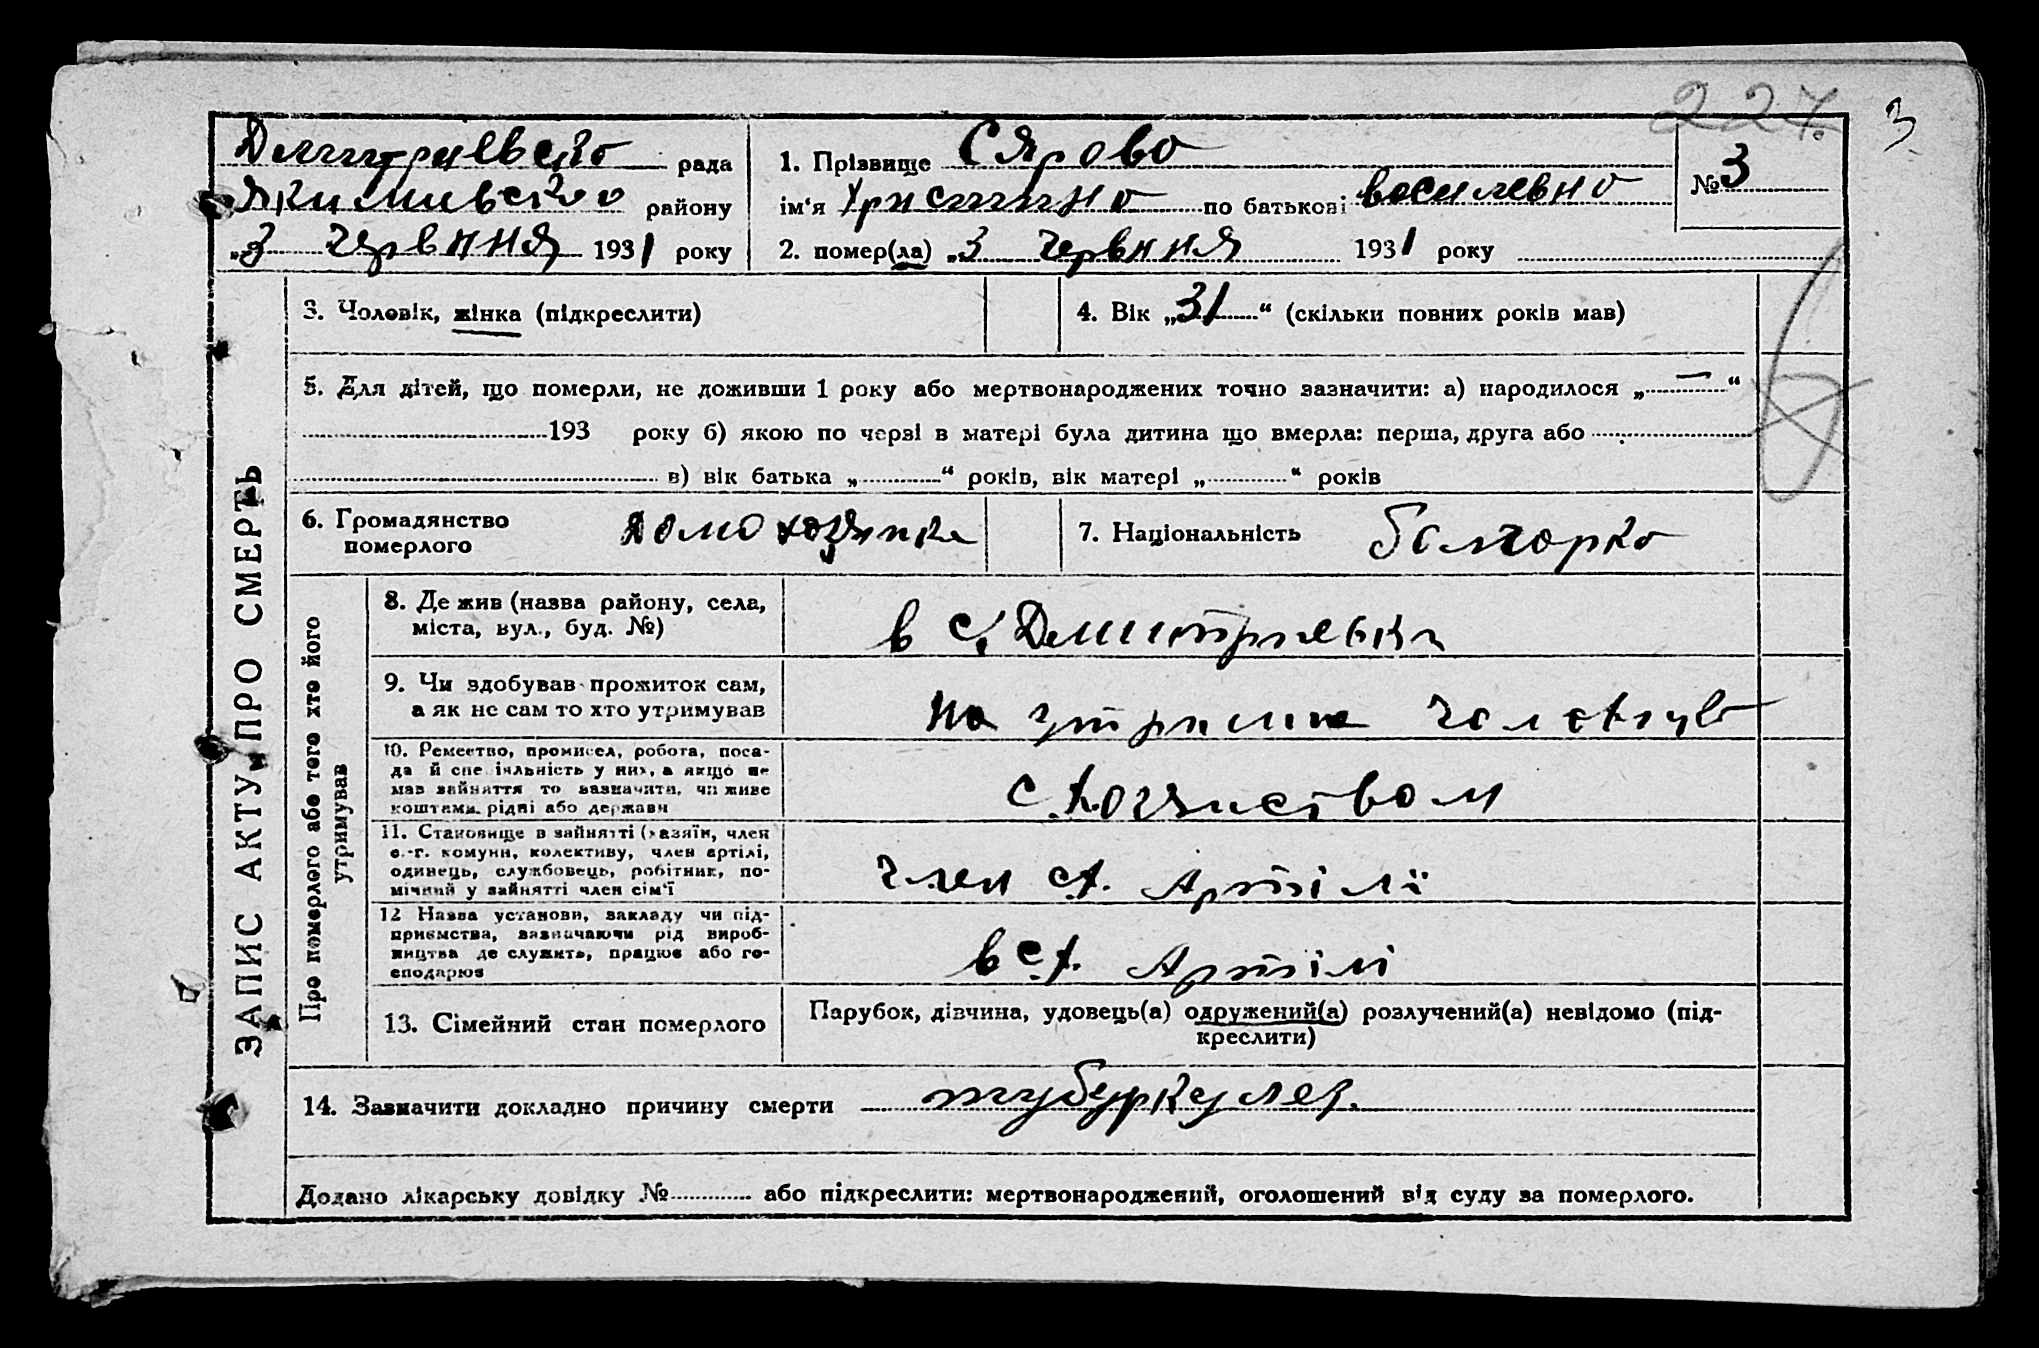 227.
3
Дмитриевсько рада
Якимивского району
„3 червння 1931 року
1. Прізвище Сярова
ім'я Христина по батькові василевна
2. помер(ла) „3 червння 1931 року
№ 3
ЗАПИС АКТУ ПРО СМЕРТЬ
3. Чоловік, жінка (підкреслити)
4. Вік „31“ (скільки повних років мав)
5. Для дітей, що померли, не доживши 1 року або мертвонароджених точно зазначити: а) народилося „—“
193 року б) якою по черзі в матері була дитина що вмерла: перша, друга або
в) вік батька „ “ років, вік матері „ “ років
6. Громадянство
померлого
домохозяика
7. Національність болгорка
Про померлого або того хто його
утримував
8. Де жив (назва району, села,
міста, вул., буд. №)
в с. Дмитриевки
9. Чи здобував прожиток сам,
а як не сам то хто утримував
на утримии
10. Ремество, промисел, робота, поса-
да й спеціяльність у них, а якщо не
мав зайняття то зазначити, чи живе
коштами рідні або держави
с. хозяиством
11. Становище в зайнятті (хазяїн, член
с.-г. комуни, колективу, член артілі,
одинець, службовець, робітник, по-
мічний у зайнятті член сім'ї
член сх. Артілі
12 Назва установи, закладу чи під-
приємства, зазначаючи рід вироб-
ництва де служить, працює або го-
сподарює
в с.х. Артілі
13. Сімейний стан померлого
Парубок, дівчина, удовець(а) одружений(а) розлучений(а) невідомо (під-
креслити)
14. Зазначити докладно причину смерти туберкулез.
Додано лікарську довідку № або підкреслити: мертвонароджений, оголошений від суду за померлого.